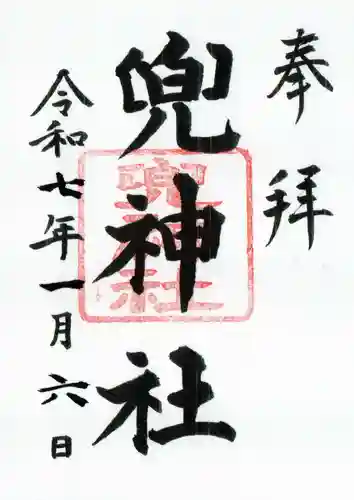 奉拝
兜神社
兜神社
令和七年一月六日